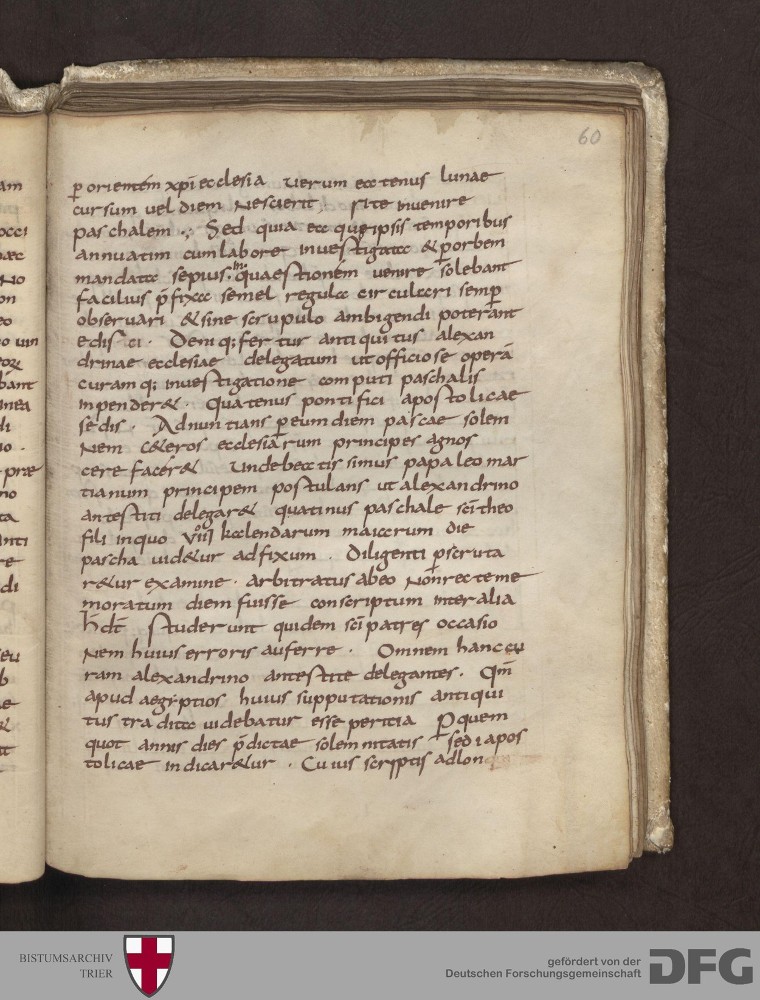 60
am
p orientem xpi ecclesia uerum eatenus lunae
cursum uel diem nescierit, rite inuenire
occi
paschalem ·, Sed quia ea que ipsis temporibus
annuatim cum labore inuestigata & p orbem
No
mandata sepius · in quaestionem uenire solebant
on
facilius p̄fixa semel regula circulari semp
eo
obseruari & sine scrupulo ambigendi poterant
o uin
edisci · Deniq; fertur antiquitus alexan
drinae ecclesiae delegatum ut officiose operā
bant
curamq; inuestigatione computi paschalis
inpender& · Quatenus pontifici apostolicae
di
sedis · Adnuntians p eum diem pascae solem
nem c&eros ecclesiarum principes agnos
præ
cere facer& Unde beatissimus papa leo mar
no
tianum principem postulans ut alexandrino
ta
antestiti delegar& quatinus paschale sc̄i theo
anti
fili in quo uıııı kalendarum maiarum die
re
pascha uid&ur adfixum · Diligenti pscruta
di
r&ur examine · arbitratus ab eo non recte me
moratum diem fuisse conscriptum inter alia
h̄ dt̄ Studerunt quidem sc̄i patres occasio
eu
nem huius erroris auferre · Omnem hanc cu
b
ram alexandrino antestite delegantes · Qm̄
apud aegiptios huius supputationis antiqui
tus tradita uidebatur esse peritia P quem
quot annis dies p̄dictae solemnitatis sedi apos
tolicae indicar&ur · Cuius scriptis ad lon
BISTUMSARCHIV
TRIER
gefördert von der
Deutschen Forschungsgemeinschaft
DFG